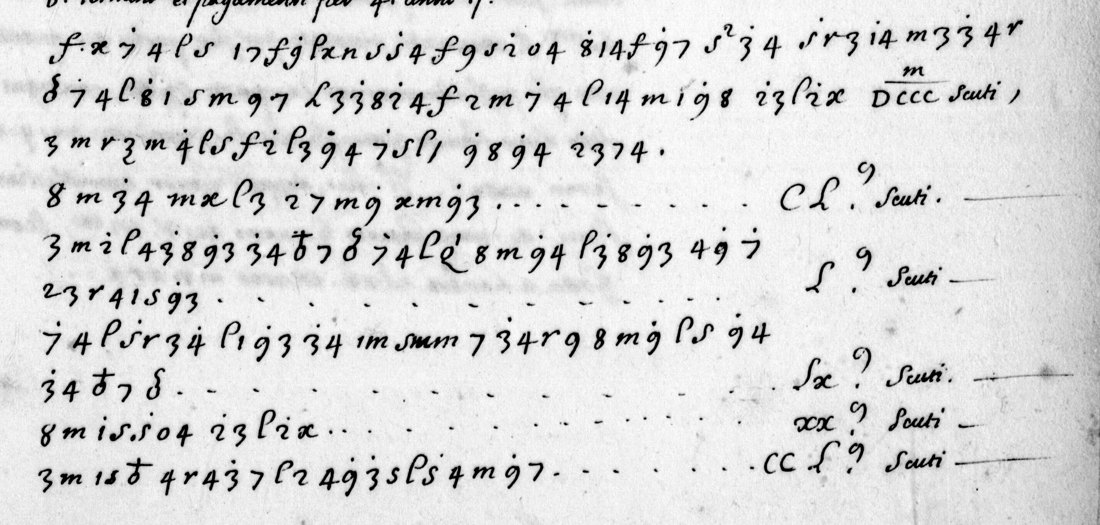 et pagamenti per 41 anni
f·x 7̇ 4 l s 17 f ġ l x n s ṡ 4 f 9 s i 0 4 8̇ 1 4 f 9̇ 7 s² 3̇ 4 ṡ r 3 i 4 m 3̇ 3̇ 4 r
δ 7̇ 4 l 8̇ 1 s m 9 7 L 3 3̇ 8 2̇ 4 f 2 m 7̇ 4 l 1 4 m i 9̇ 8 i 3 l i x DCCC m scuti,
3 m r 3 m 4̇ l s f 2̇ l 3 9̇ 4 7̇ s l 1 9̇ 8 9̇ 4 2̇ 3 7 4 .
8 m 3̇ 4 m x l 3 2̇ 7 m 9̇ x m 9̇ 3 . . . . . . . . . C L . 9 scuti.
3 m i l 4 3̇ 8 9̇ 3 3 4 δ 7 δ 7̇ 4 l 8 m 9̇ 4 l 3̇ 8 9̇ 3 4 9̇ 7̇
2 3 r 4 1 s 9̇ 3 . . . . . . . . . . L . 9 scuti
7̇ 4 l ṡ r 3̇ 4 l 1 9̇ 3 3̇ 4 1 m 7 3̇ 4 r 9 8 m 9̇ l s 9̇ 4
3̇ 4 δ 7 δ . . . . . . . . . . Lx . 9 scuti.
8 m i s . s 0 4 2̇ 3 l 2̇ x . . . . . . . . xx . 9 scuti
3 m 1 s δ 4 r 4 3̇ 7 l 2 4 9̇ 3 s l ṡ 4 m 9̇ 7 . . . . . . . CC L . 9 scuti